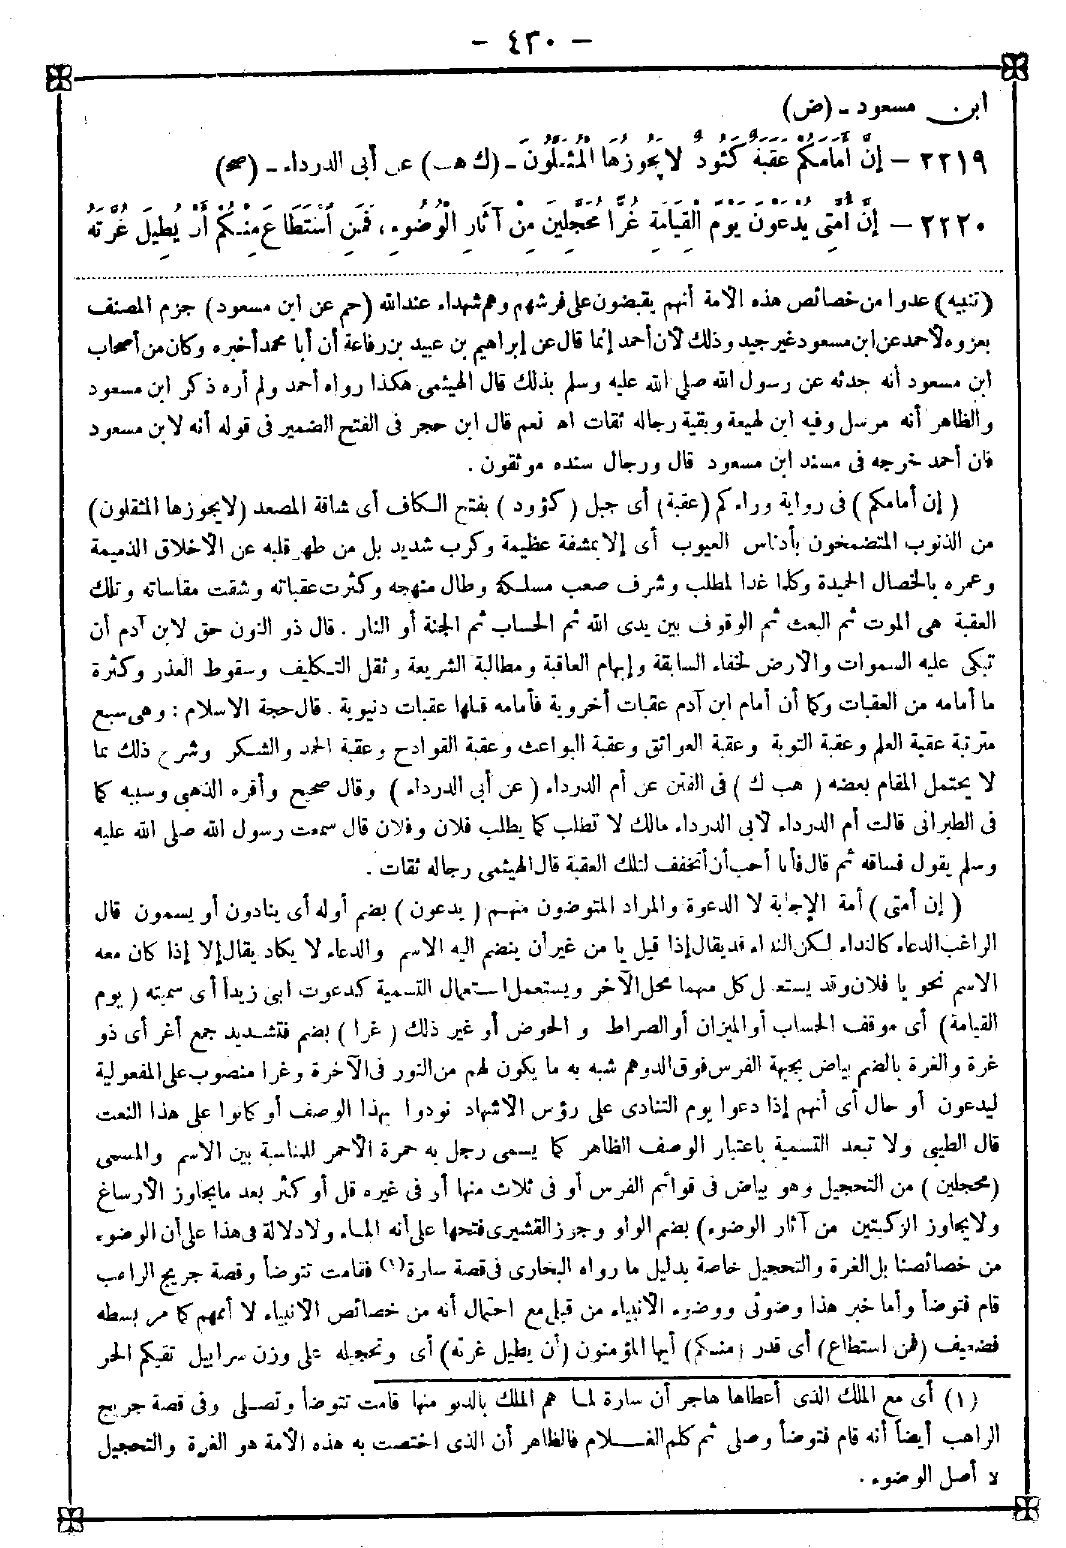 - ٤٣٠ -
ابن مسعود - (ض)
٢٢١٩ - إِنَّ أَمَامَكُمْ عَقَبَةً كَئُودًا لَا يَجُوزُهَا الْمُثْقَلُونَ - (ك هب) عن أبى الدرداء - (صح)
٢٢٢٠ - إِنَّ أُمَّتِى يُدْعَوْنَ يَوْمَ الْقِيَامَةِ غُرًّا مُحَجَّلِينَ مِنْ آثَارِ الْوُضُوءِ، فَمَنِ اسْتَطَاعَ مِنْكُمْ أَنْ يُطِيلَ غُرَّتَهُ
(تنبيه) عدوا من خصائص هذه الأمة أنهم يقبضون على فرشهم وهم شهداء عند الله (حم عن ابن مسعود) جزم المصنف
بعزوه لأحمد عن ابن مسعود غير جيد وذلك لأن أحمد إنما قال عن إبراهيم بن عبيد بن رفاعة أن أبا محمد أخبره وكان من أصحاب
ابن مسعود أنه حدثه عن رسول الله صلى الله عليه وسلم بذلك قال الهيثمى هكذا رواه أحمد ولم أره ذكر ابن مسعود
والظاهر أنه مرسل وفيه ابن لهيعة وبقية رجاله ثقات اه نعم قال ابن حجر فى الفتح الضمير فى قوله أنه لابن مسعود
فان أحمد خرجه فى مسند ابن مسعود قال ورجال سنده موثقون .
( إن أمامكم ) فى رواية وراءكم (عقبة) أى جبل ( كؤود ) بفتح الكاف أى شاقة المصعد (لا يجوزها المثقلون)
من الذنوب المتضمخون بأدناس العيوب أى إلا بمشقة عظيمة وكرب شديد بل من طهر قلبه عن الأخلاق الذميمة
وعمره بالخصال الحميدة وكلما غدا لمطلب وشرف صعب مسلكه وطال منهجه وكثرت عقباته وشقت مقاساته وتلك
العقبة هى الموت ثم البعث ثم الوقوف بين يدى الله ثم الحساب ثم الجنة أو النار . قال ذو النون حق لابن آدم أن
تبكى عليه السموات والأرض لخفاء السابقة وإبهام العاقبة ومطالبة الشريعة وثقل التكليف وسقوط العذر وكثرة
ما أمامه من العقبات وكما أن أمام ابن آدم عقبات أخروية فأمامه قبلها عقبات دنيوية . قال حجة الاسلام : وهى سبع
مترتبة عقبة العلم وعقبة التوبة وعقبة العوائق وعقبة البواعث وعقبة القوادح وعقبة الحمد والشكر وشرح ذلك بما
لا يحتمل المقام بعضه ( هب ك ) فى الفتن عن أم الدرداء ( عن أبى الدرداء ) وقال صحيح وأقره الذهبى وسببه كما
فى الطبرانى قالت أم الدرداء لأبى الدرداء مالك لا تطلب كما يطلب فلان وفلان قال سمعت رسول الله صلى الله عليه
وسلم يقول فساقه ثم قال فأنا أحب أن أتخفف لتلك العقبة قال الهيثمى رجاله ثقات .
( إن أمتى ) أمة الإجابة لا الدعوة والمراد المتوضون منهم ( يدعون ) بضم أوله أى ينادون أو يسمون قال
الراغب الدعاء كالنداء لكن النداء قد يقال إذا قيل يا من غير أن ينضم اليه الاسم والدعاء لا يكاد يقال إلا إذا كان معه
الاسم نحو يا فلان وقد يستعمل كل منهما محل الآخر ويستعمل استعمال التسمية كدعوت ابنى زيداً أى سميته ( يوم
القيامة) أى موقف الحساب أو الميزان أو الصراط و الحوض أو غير ذلك ( غرا ) بضم فتشديد جمع أغر أى ذو
غرة والغرة بالضم بياض بجبهة الفرس فوق الدرهم شبه به ما يكون لهم من النور فى الآخرة وغرا منصوب على المفعولية
ليدعون أو حال أى أنهم إذا دعوا يوم التنادى على رؤس الأشهاد نودوا بهذا الوصف أو كانوا على هذا النعت
قال الطيبى ولا تبعد التسمية باعتبار الوصف الظاهر كما يسمى رجل به حمرة الأحمر للمناسبة بين الاسم والمسمى
(محجلين) من التحجيل وهو بياض فى قوائم الفرس أو فى ثلاث منها أو فى غيره قل أو كثر بعد ما يجاوز الأرساغ
ولا يجاوز الركبتين من آثار الوضوء) بضم الواو وجوز القشيرى فتحها على أنه الماء ولا دلالة فى هذا على أن الوضوء
من خصائصنا بل الغرة والتحجيل خاصة بدليل ما رواه البخارى فى قصة سارة(١) فقامت تتوضأ وقصة جريج الراهب
قام فتوضأ وأما خبر هذا وضوئى ووضوء الأنبياء من قبلى مع احتمال أنه من خصائص الأنبياء لا أممهم كما مر بسطه
فضعيف (فمن استطاع) أى قدر (منكم) أيها المؤمنون (أن يطيل غرته) أى وتحجيله على وزن سرابيل تقيكم الحر
(١) أى مع الملك الذى أعطاها هاجر أن سارة لما هم الملك بالدنو منها قامت تتوضأ وتصلى وفى قصة جريج
الراهب أيضاً أنه قام فتوضأ وصلى ثم كلم الغلام فالظاهر أن الذى اختصت به هذه الأمة هو الغرة والتحجيل
لا أصل الوضوء .